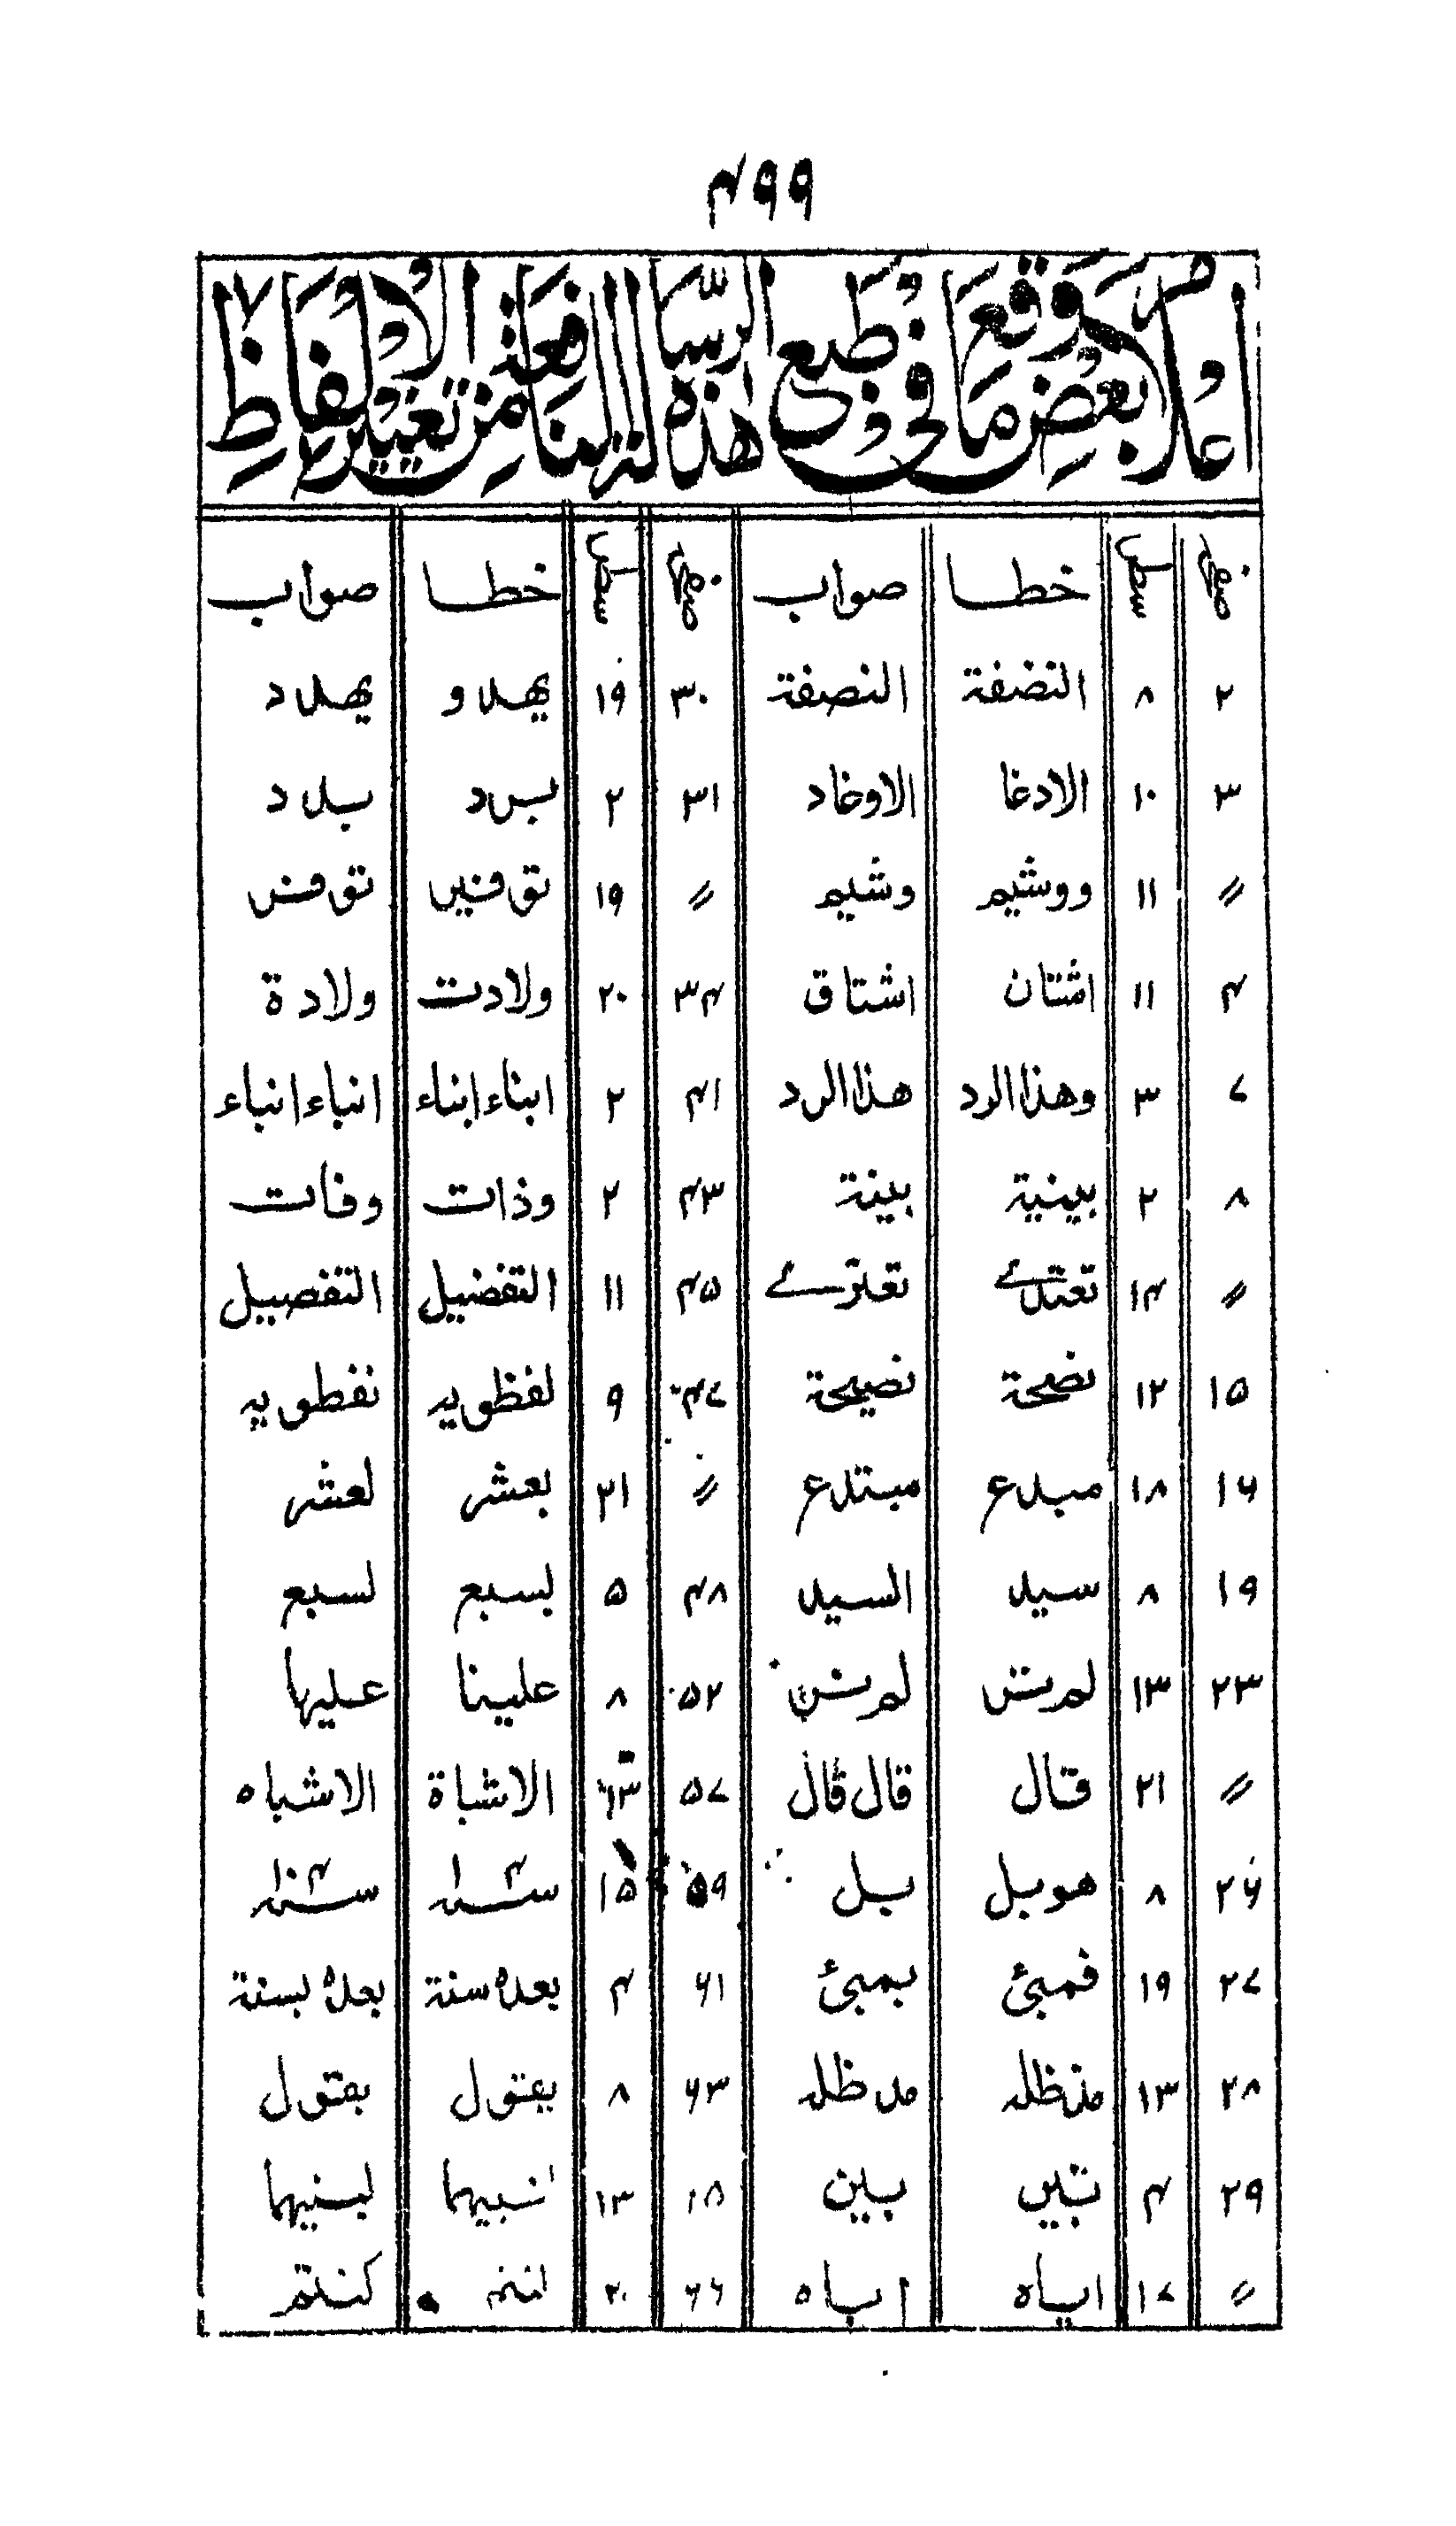 ۴۹۹
اعلام بعض ما وقع في طبع هذه الرسالة النافعة من تغيير الالفاظ
صفحه سطر خطا صواب صفحه سطر خطا صواب
۲ ۸ النضفة النصفة ۳۰ ۱۹ يهد و يهد د
۳ ۱۰ الادغا الاوغاد ۳۱ ۲ بسرد بلد د
〃 ۱۱ ووشيم وشيم 〃 ۱۹
۴ ۱۱ اشتان اشتاق ۳۴ ۲۰ ولادت ولادة
۷ ۳ وهذا الرد هذا الرد ۴۱ ۲ ابناء ابناء انباء انباء
۸ ۲ بينية بينة ۴۳ ۲ وذات وفات
〃 ۱۴ تعتدے تعترے ۴۵ ۱۱ التفضيل التفصيل
۱۵ ۱۲ نضحة نضيحة ۴۷ ۹ لفظويه نفطويه
۱۶ ۱۸ مبدع مبتدع 〃 ۲۱ بعشر لعشر
۱۹ ۸ سيد السيد ۴۸ ۵ بسبع لسبع
۲۳ ۱۳ لم تر ۵۲ ۸ علينا عليها
〃 ۲۱ قال قال قال ۵۷ ۱۳ الاشباة الاشباه
۲۶ ۸ هو بل بل ۵۹ ۱۵
۲۷ ۱۹ فمبئ بمبئ ۶۱ ۴ بعده سنة بعده بسنة
۲۸ ۱۳ مذظله مد ظله ۶۳ ۸ بيقول بقول
۲۹ ۴ تبين بين ۱۳ لبنيهما
〃 ۱۷ اياه اباه ۶۶ ۲۰ كنتم